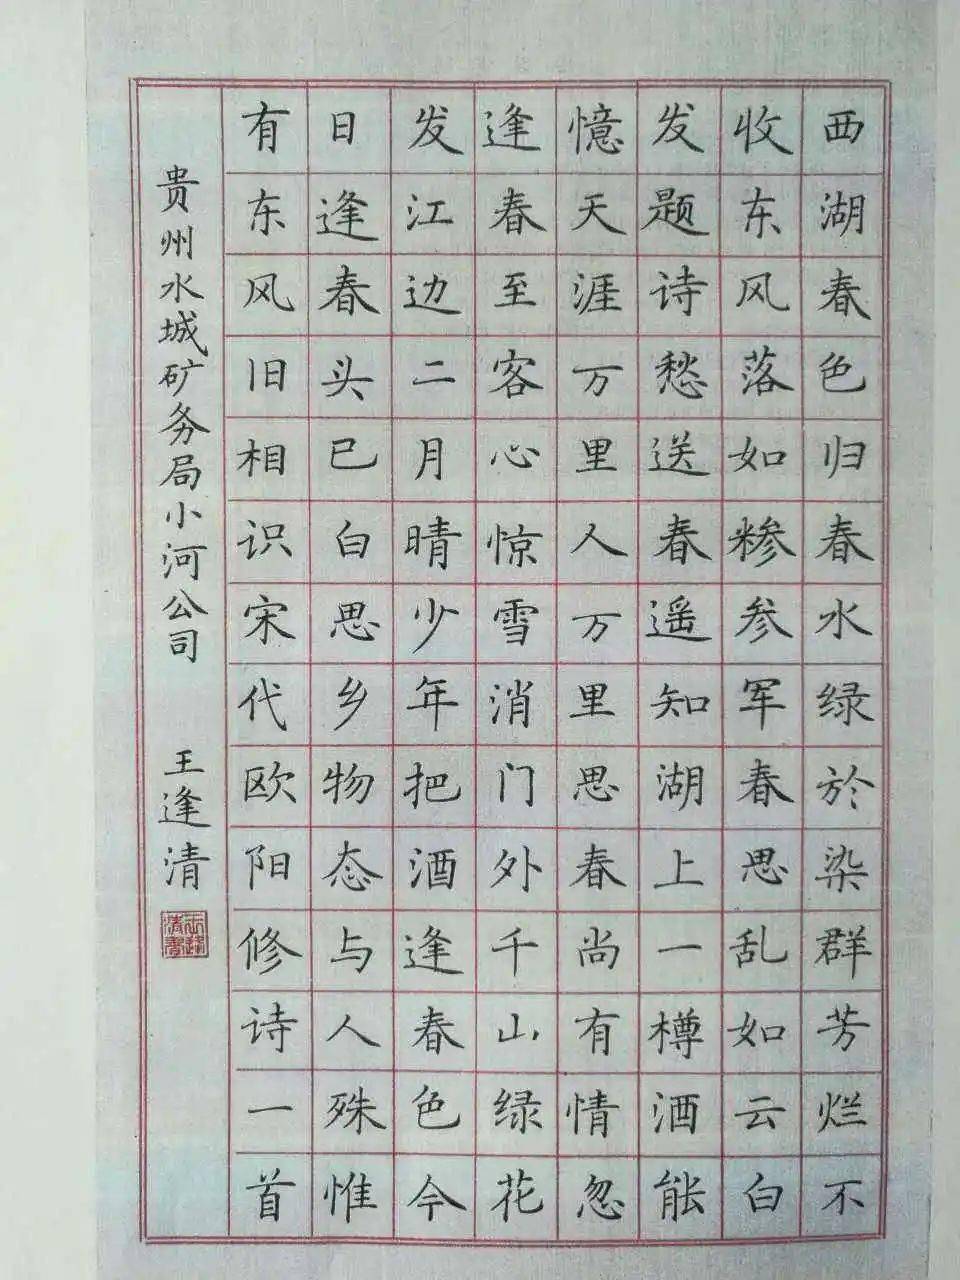 西湖春色归春水绿於染群芳烂不
收东风落如糁参军春思乱如云白
发题诗愁送春遥知湖上一樽酒能
憶天涯万里人万里思春尚有情忽
逢春至客心惊雪消门外千山绿花
发江边二月晴少年把酒逢春色今
日逢春头已白思乡物态与人殊惟
有东风旧相识宋代欧阳修诗一首
贵州水城矿务局小河公司 王逢清